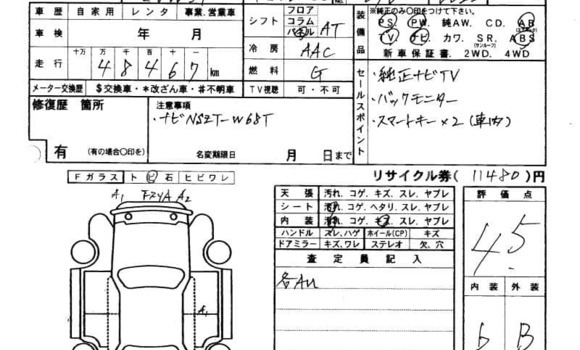 車歴 自家用 レンタ 事業、営業車 シフト フロア コラム パネル AT
※純正のみ〇印をつけて下さい。
車検 年 月
装備品 PS PW 純AW. CD. AB
TV ナビ カワ. SR.(サンルーフ) ABS
新車保証書. 2WD. 4WD
冷房 AAC
走行 十万 万 千 百 十 一
48467 km 燃料 G
メーター交換歴 $交換車・*改ざん車・#不明車 TV視聴 可・不可
セールスポイント
・純正ナビTV
・バックモニター
・スマートキー×2(車内)
修復歴 箇所 注意事項
・ナビNSZT-W68T
有 (有の場合〇印を) 名変期限日 月 日まで
リサイクル券(11480)円
Fガラス トビ石 ヒビワレ
A1 FスリA A2
天張 汚れ、コゲ、キズ、スレ、ヤブレ
シート 汚れ、コゲ、ヘタリ、スレ、ヤブレ
内装 汚れ、コゲ、キズ、スレ、ヤブレ
ハンドル スレ、ハゲ ホィール(CP) キズ
ドアミラー キズ、ワレ ステレオ 欠、穴
評価点
4.5
査定員記入
各AU
A1
内装 外装
6 B